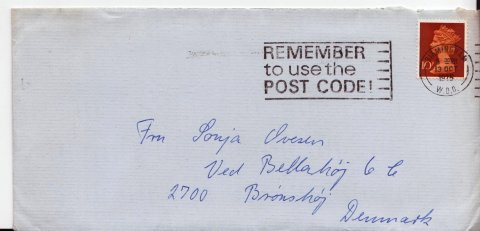 REMEMBER
to use the
POST CODE!
10
1975
W.D.O.
Fru Sonja Ovesen
Ved Bellahøj 6 C
2700 Brønshøj
Denmark